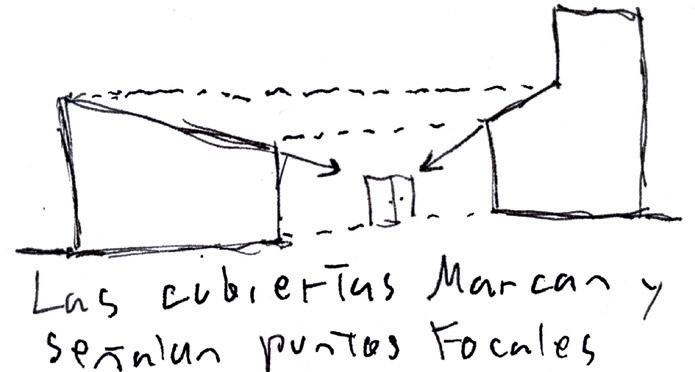 Las cubiertas Marcan y
señalan puntos Focales